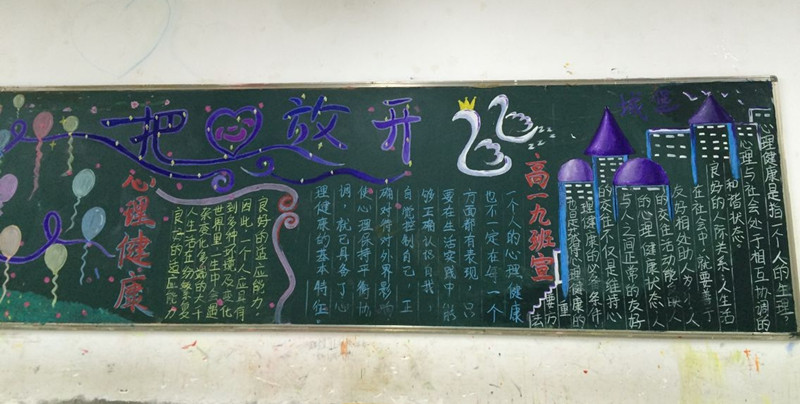 把心放开
心理健康
高一九班宣
心理健康是指一个人的生理
心理与社会处于相互协调的
和谐状态。
良好的人际关系:人生活
在社会中,就要善于
友好相处助人为人
的交往活动能反映人
的心理健康状态,人
与人之间正常的友好
的交往不仅是维持心
理健康的必备条件
也是获得心理健康的
重
要方
法
一个人的心理健康
也不一定在每一个
方面都有表现,只
要在生活实践中,能
够正确认识自我
自觉控制自己,正
确对待对外界影响
使心理保持平衡协
调,就已具备了心
理健康的基本特征。
良好的适应能力
人生活在纷繁复
杂变化多端的大千
世界里一生中会遇
到多种环境及变化
因此,一个人应具有
良好的适应能力.